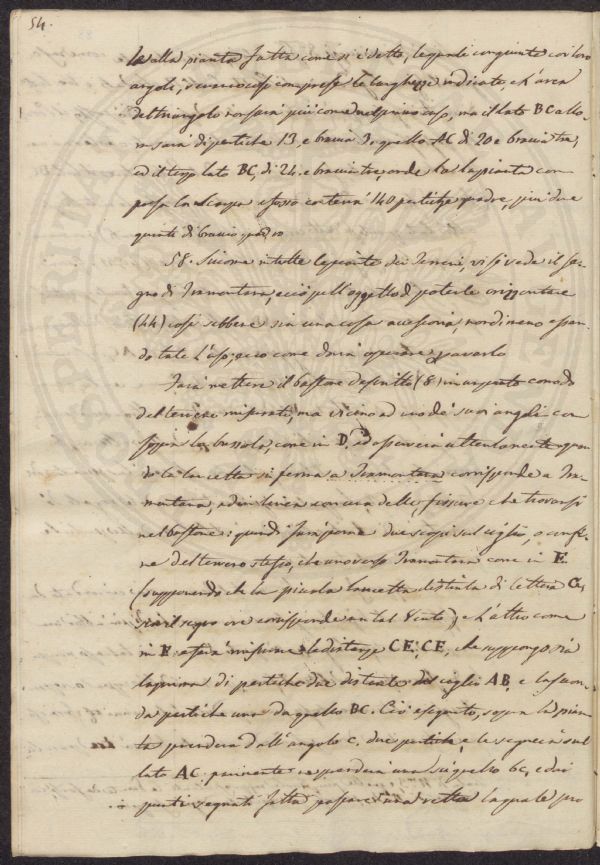 54.
la alla pianta fatta come si è detto, le quali congiunte coi loro
angoli, verran così comprese le larghezze indicate, e l'area
del triangolo non sarà più come nel primo caso, ma il lato BC allo-
ra sarà di pertiche 13. e bracia 3. quello AC di 20 e bracia tre,
ed il terzo lato BC, di 24. e bracia tre onde la pianta com
presa la Scarpa e fosso conterrà 140 pertiche quadre, più due
quinti di bracio quadro
58. Siccome in tutte le piante dei Terreni, vi si vede il se-
gno di Tramontana, e ciò pell'oggetto di poterle orizzontare
(44) così sebbene sia una cosa accessoria, nondimeno essen-
do tale l'uso; ecco come dovrà operare x avarlo
Farà mettere il bastone descritto (8) in un punto comodo
del terreno misurato, ma vicino ad uno de' suoi angoli con
sopra la bussola, come in D, ed osserverà attentamente quan-
do la lancetta si ferma a Tramontana corrisponde a Tra-
montana, ed in linea con una delle fissure che trovansi
nel bastone: quindi farà porre due scopi sul ciglio, o confi-
ne del terreno stesso, che uno verso Tramontana come in E
(supponendo che la piccola lancetta distinta di lettera C,
sia il segno ove corrisponde un tal Vento) e l'altro come
in F: e farà misurare le distanze CE: CF, che suppongo sia
la prima di pertiche due distante dal ciglio AB, e la secon-
da pertiche una da quello BC. Ciò eseguito, sopra la pian-
ta prenderà dall'angolo C. due pertiche, e le segnerà sul
lato AC. parimente ne prenderà una su quello bC, e dai
punti segnati farà passare una retta la quale pro